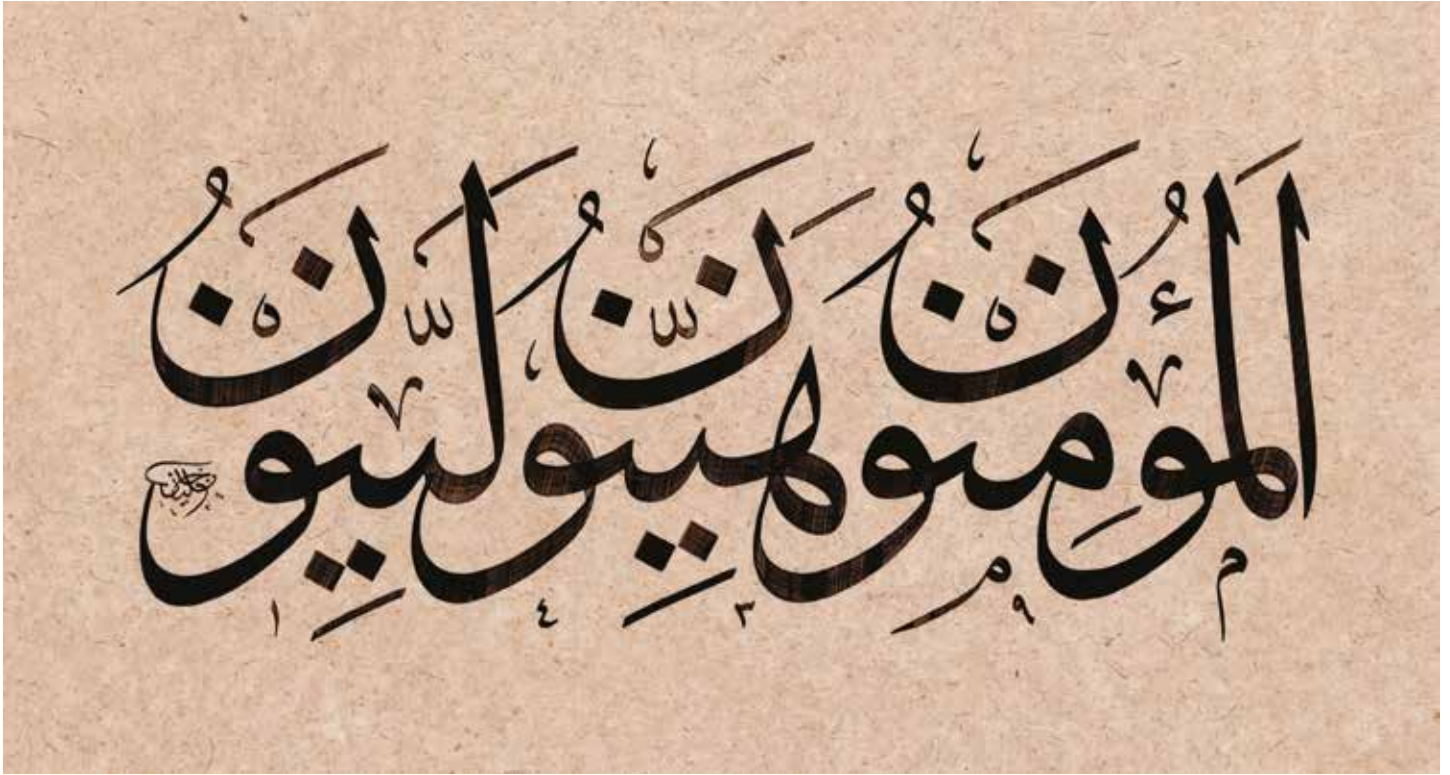 اَلْمُؤْمِنُونَ هَيِّنُونَ لَيِّنُونَ
١٤٣٩